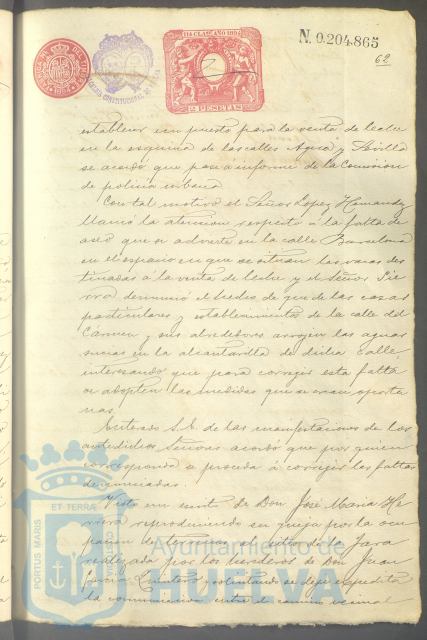 11ª CLASE AÑO 1904
2 PESETAS
N. 0.204.865
62
establecer un puesto para la venta de leche
en la esquina de las calles Agua y Sevilla
se acordó que pase a informe de la Comision
de policia urbana
Con tal motivo el Señor Lopez Hernandez
llamó la atencion respecto á la falta de
aseo que se advierte en la calle Barcelona
en el espacio en que se situan las vacas des
tinadas á la venta de leche y el Señor Sie
rra denunció el hecho de que de las casas
particulares y establecimientos de la calle del
Cármen y sus alrededores arrojen las aguas
sucias en la alcantarilla de dicha calle
interesando que para corregir esta falta
se adopten las medidas que se crean oportu
nas.
Enterado S.E. de las manifestaciones de los
antedichos Señores acordó que por quien
corresponda se proceda á corregir las faltas
denunciadas.
Visto un escrito de Don José Maria He
rrera reproduciendo su queja por la ocu
pacion de terrenos al sitio de la Jara
realizada por los herederos de Don Juan
Garcia y solicitando se deje expedita
la comunicacion entre el camino vecinal
PORTUS MARIS
ET TERRÆ
CUSTODIA
Ayuntamiento de
HUELVA